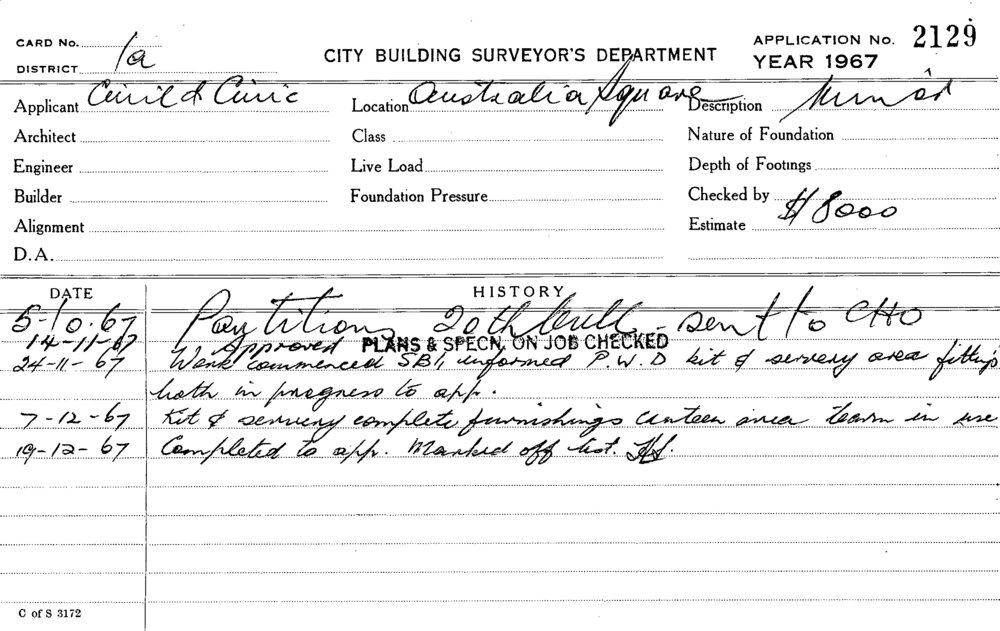 CARD No. 1a
DISTRICT
CITY BUILDING SURVEYOR'S DEPARTMENT
APPLICATION No. 2129
YEAR 1967
Applicant Civil & Civic
Location Australia Square
Description
Architect
Class
Nature of Foundation
Engineer
Live Load
Depth of Footings
Builder
Foundation Pressure
Checked by
Alignment
Estimate $8000
D.A.
DATE
HISTORY
5-10-67 Partitions 20th sent to CHO
14-11-67 Approved PLANS & SPECN. ON JOB CHECKED
24-11-67 Work commenced SB1, informed P.W.D kit & servery area fittings
both in progress to app.
7-12-67 Kit & servery complete furnishings canteen area in use
19-12-67 Completed to app. Marked off list.
C of S 3172